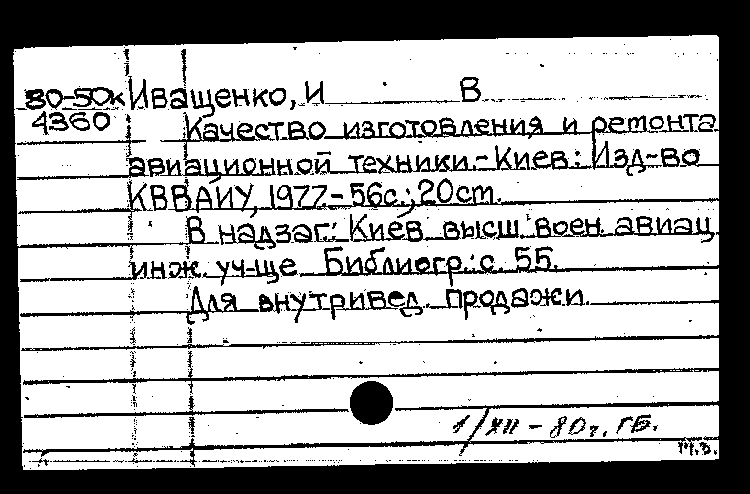 80-50к Иващенко, И В
4360 Качество изготовления и ремонта
авиационной техники.- Киев: Изд-во
КВВАИУ, 1977.- 56с.; 20см.
В надзаг.: Киев. высш. воен. авиац.
инж. уч-ще. Библиогр.: с. 55.
Для внутривед. продажи.
1/XII - 80г. ГБ.